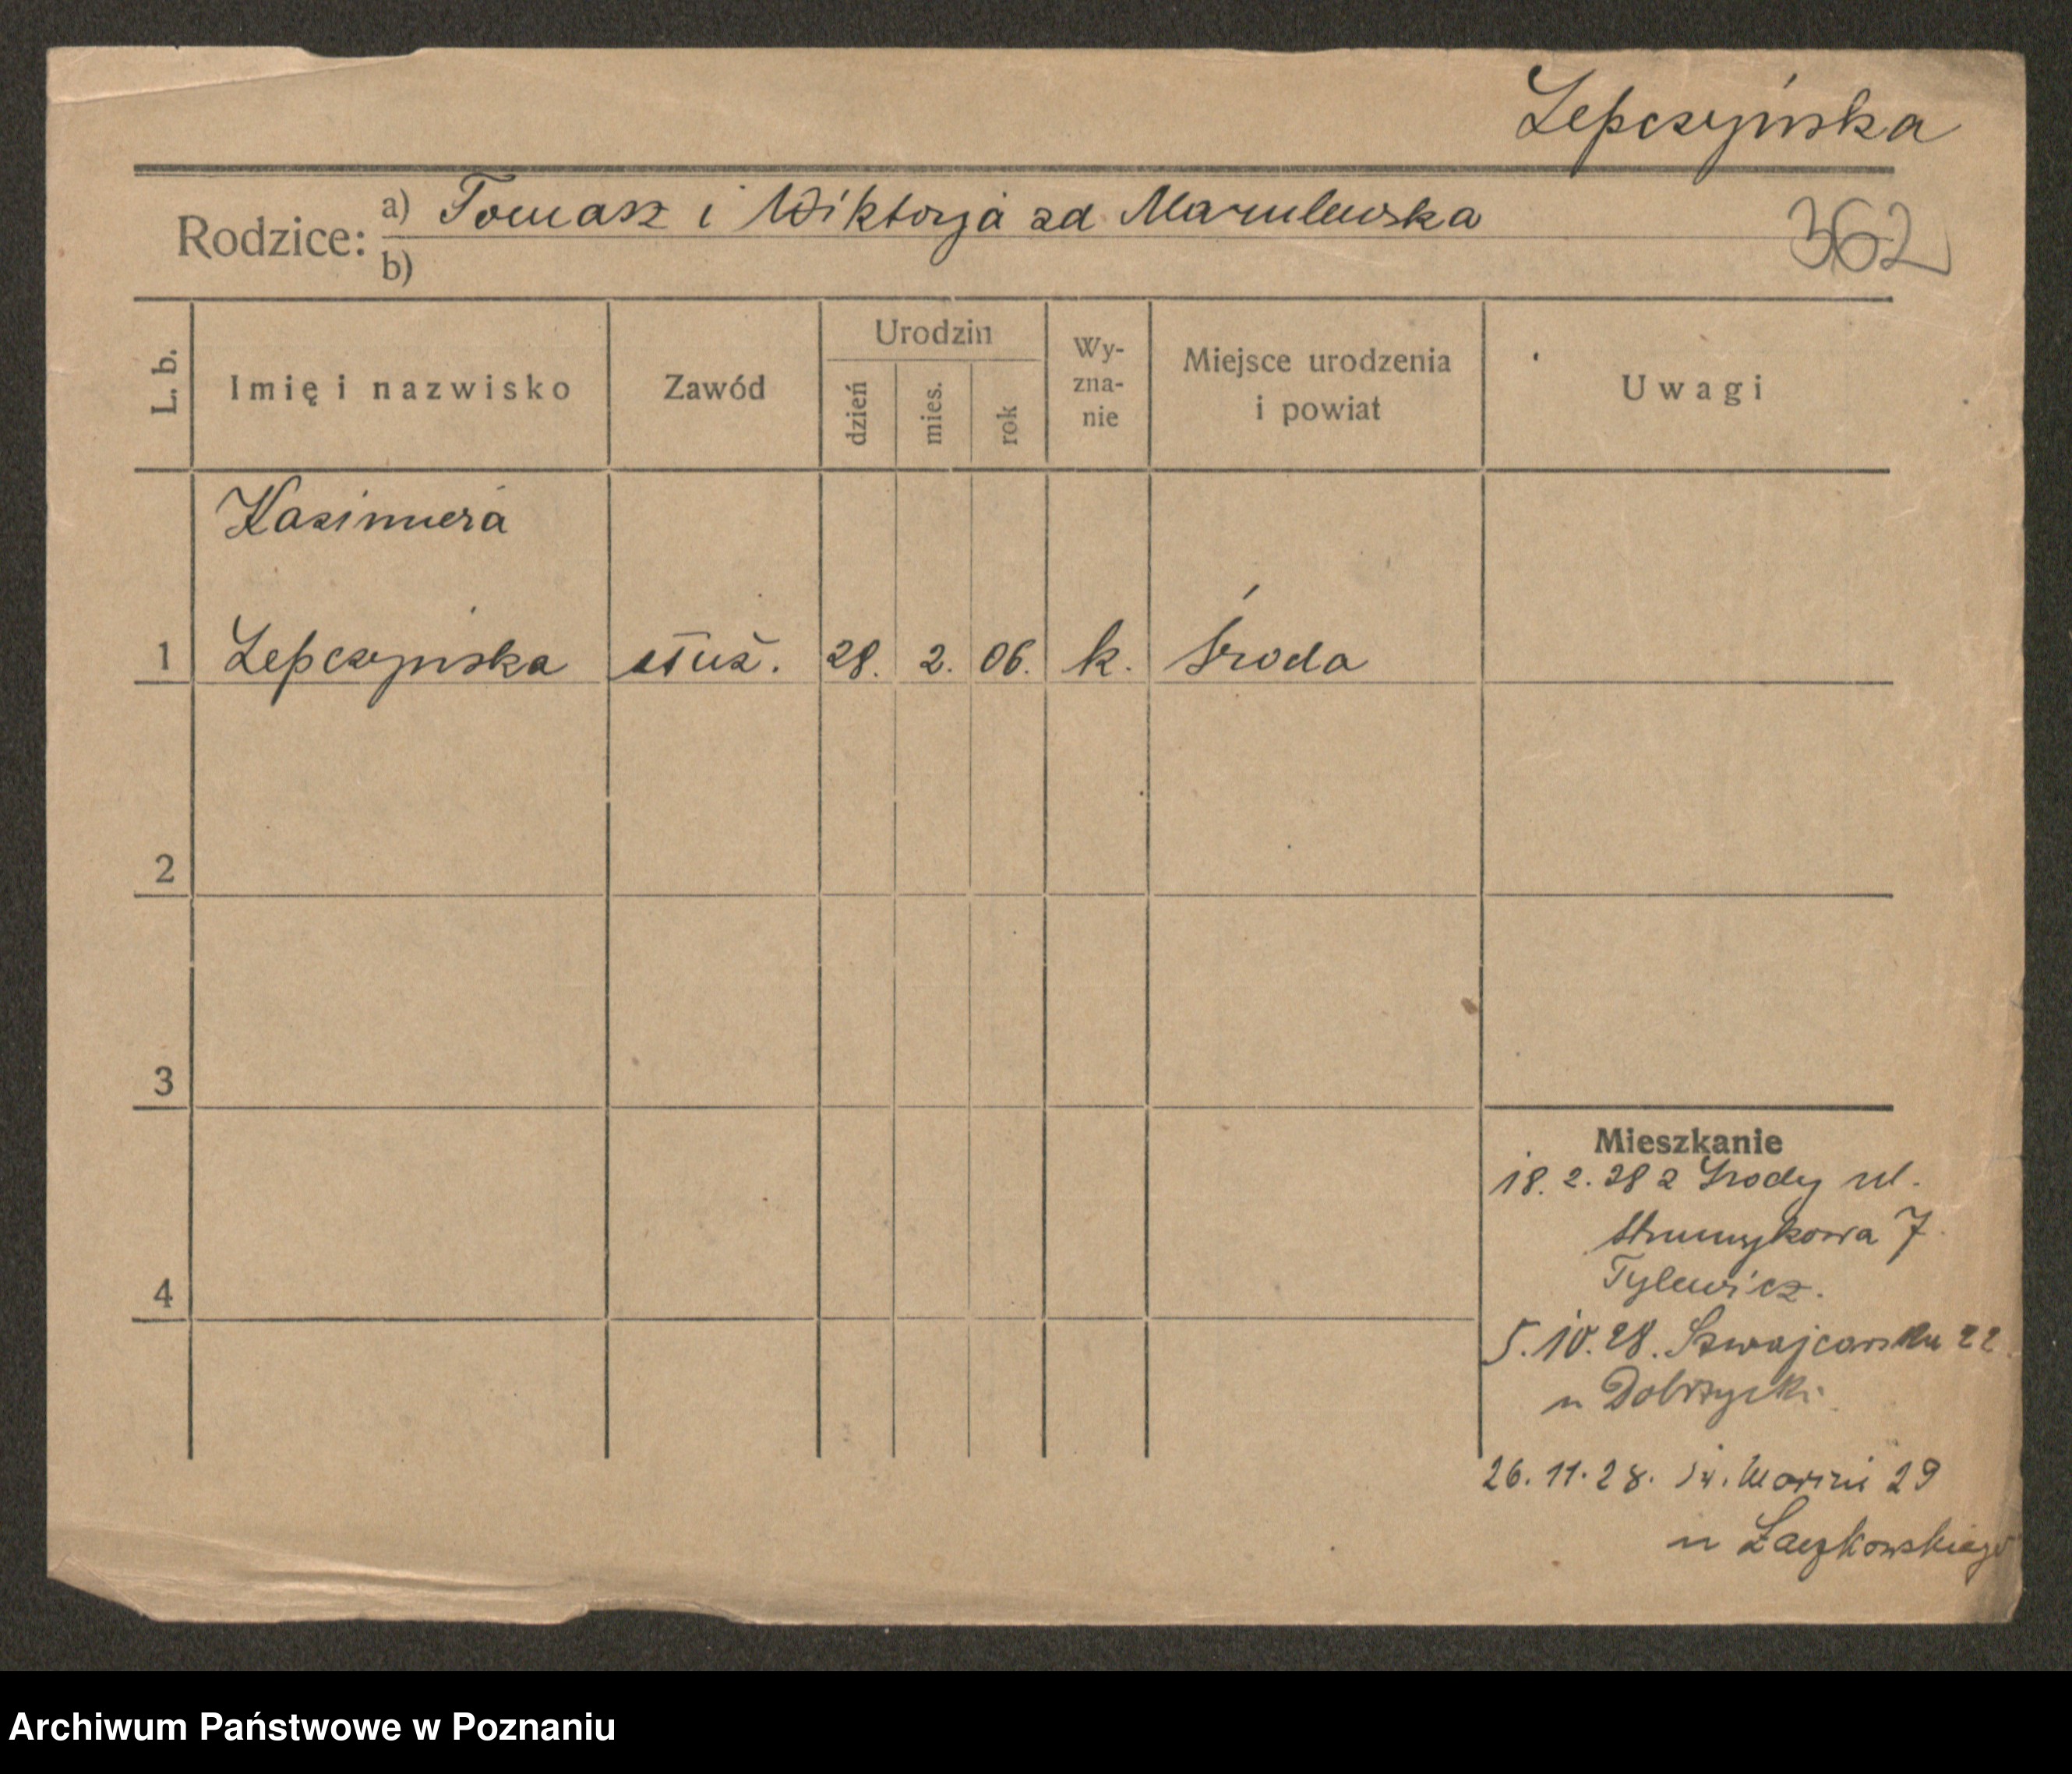 Lepczyńska
Rodzice: a) Tomasz i Wiktorja zd Marulewska
b)
362
L. b.
Imię i nazwisko
Zawód
Urodzin
dzień
mies.
rok
Wy-
zna-
nie
Miejsce urodzenia
i powiat
Uwagi
Kazimiera
1 Lepczyńska służ. 28. 2. 06. k. Środa
2
3
4
Mieszkanie
18. 2. 28 z Środy ul.
Strumykowa 7
Tylewicz.
5. 10. 28. Szwajcarska 22
u Dobrzycki
26. 11. 28. Św. Marcin 29
u Łaczkowskiego
Archiwum Państwowe w Poznaniu